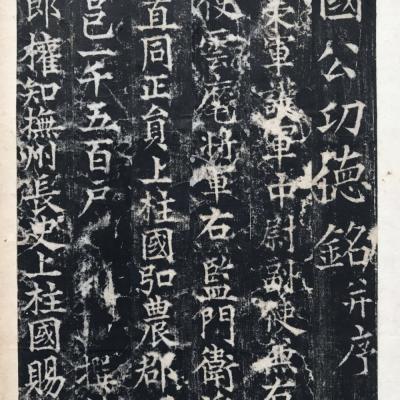 國公功德銘并序
軍護軍中尉副使兼右
使雲麾將軍右監門衛將
直同正員上柱國弘農郡
邑一千五百戶 撰
郎權知撫州長史上柱國賜